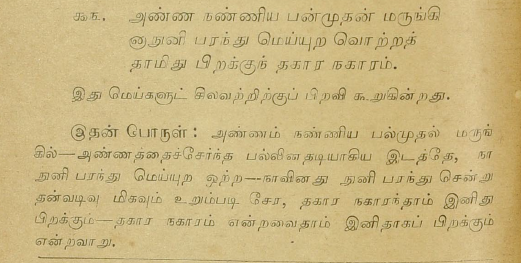 ௯௩. அண்ண நண்ணிய பன்முதன் மருங்கி
னாநுனி பரந்து மெய்யுற வொற்றத்
தாமிது பிறக்குந் தகார நகாரம்.
இது மெய்களுட் சிலவற்றிற்குப் பிறவி கூறுகின்றது.
இதன் பொருள் : அண்ணம் நண்ணிய பல்முதல் மருங்
கில்—அண்ணத்தைச்சேர்ந்த பல்லினதடியாகிய இடத்தே, நா
நுனி பரந்து மெய்யுற ஒற்ற—நாவினது நுனி பரந்து சென்று
தன்வடிவு மிகவும் உறும்படி சேர, தகார நகாரந்தாம் இனிது
பிறக்கும்—தகார நகாரம் என்றவைதாம் இனிதாகப் பிறக்கும்
என்றவாறு.